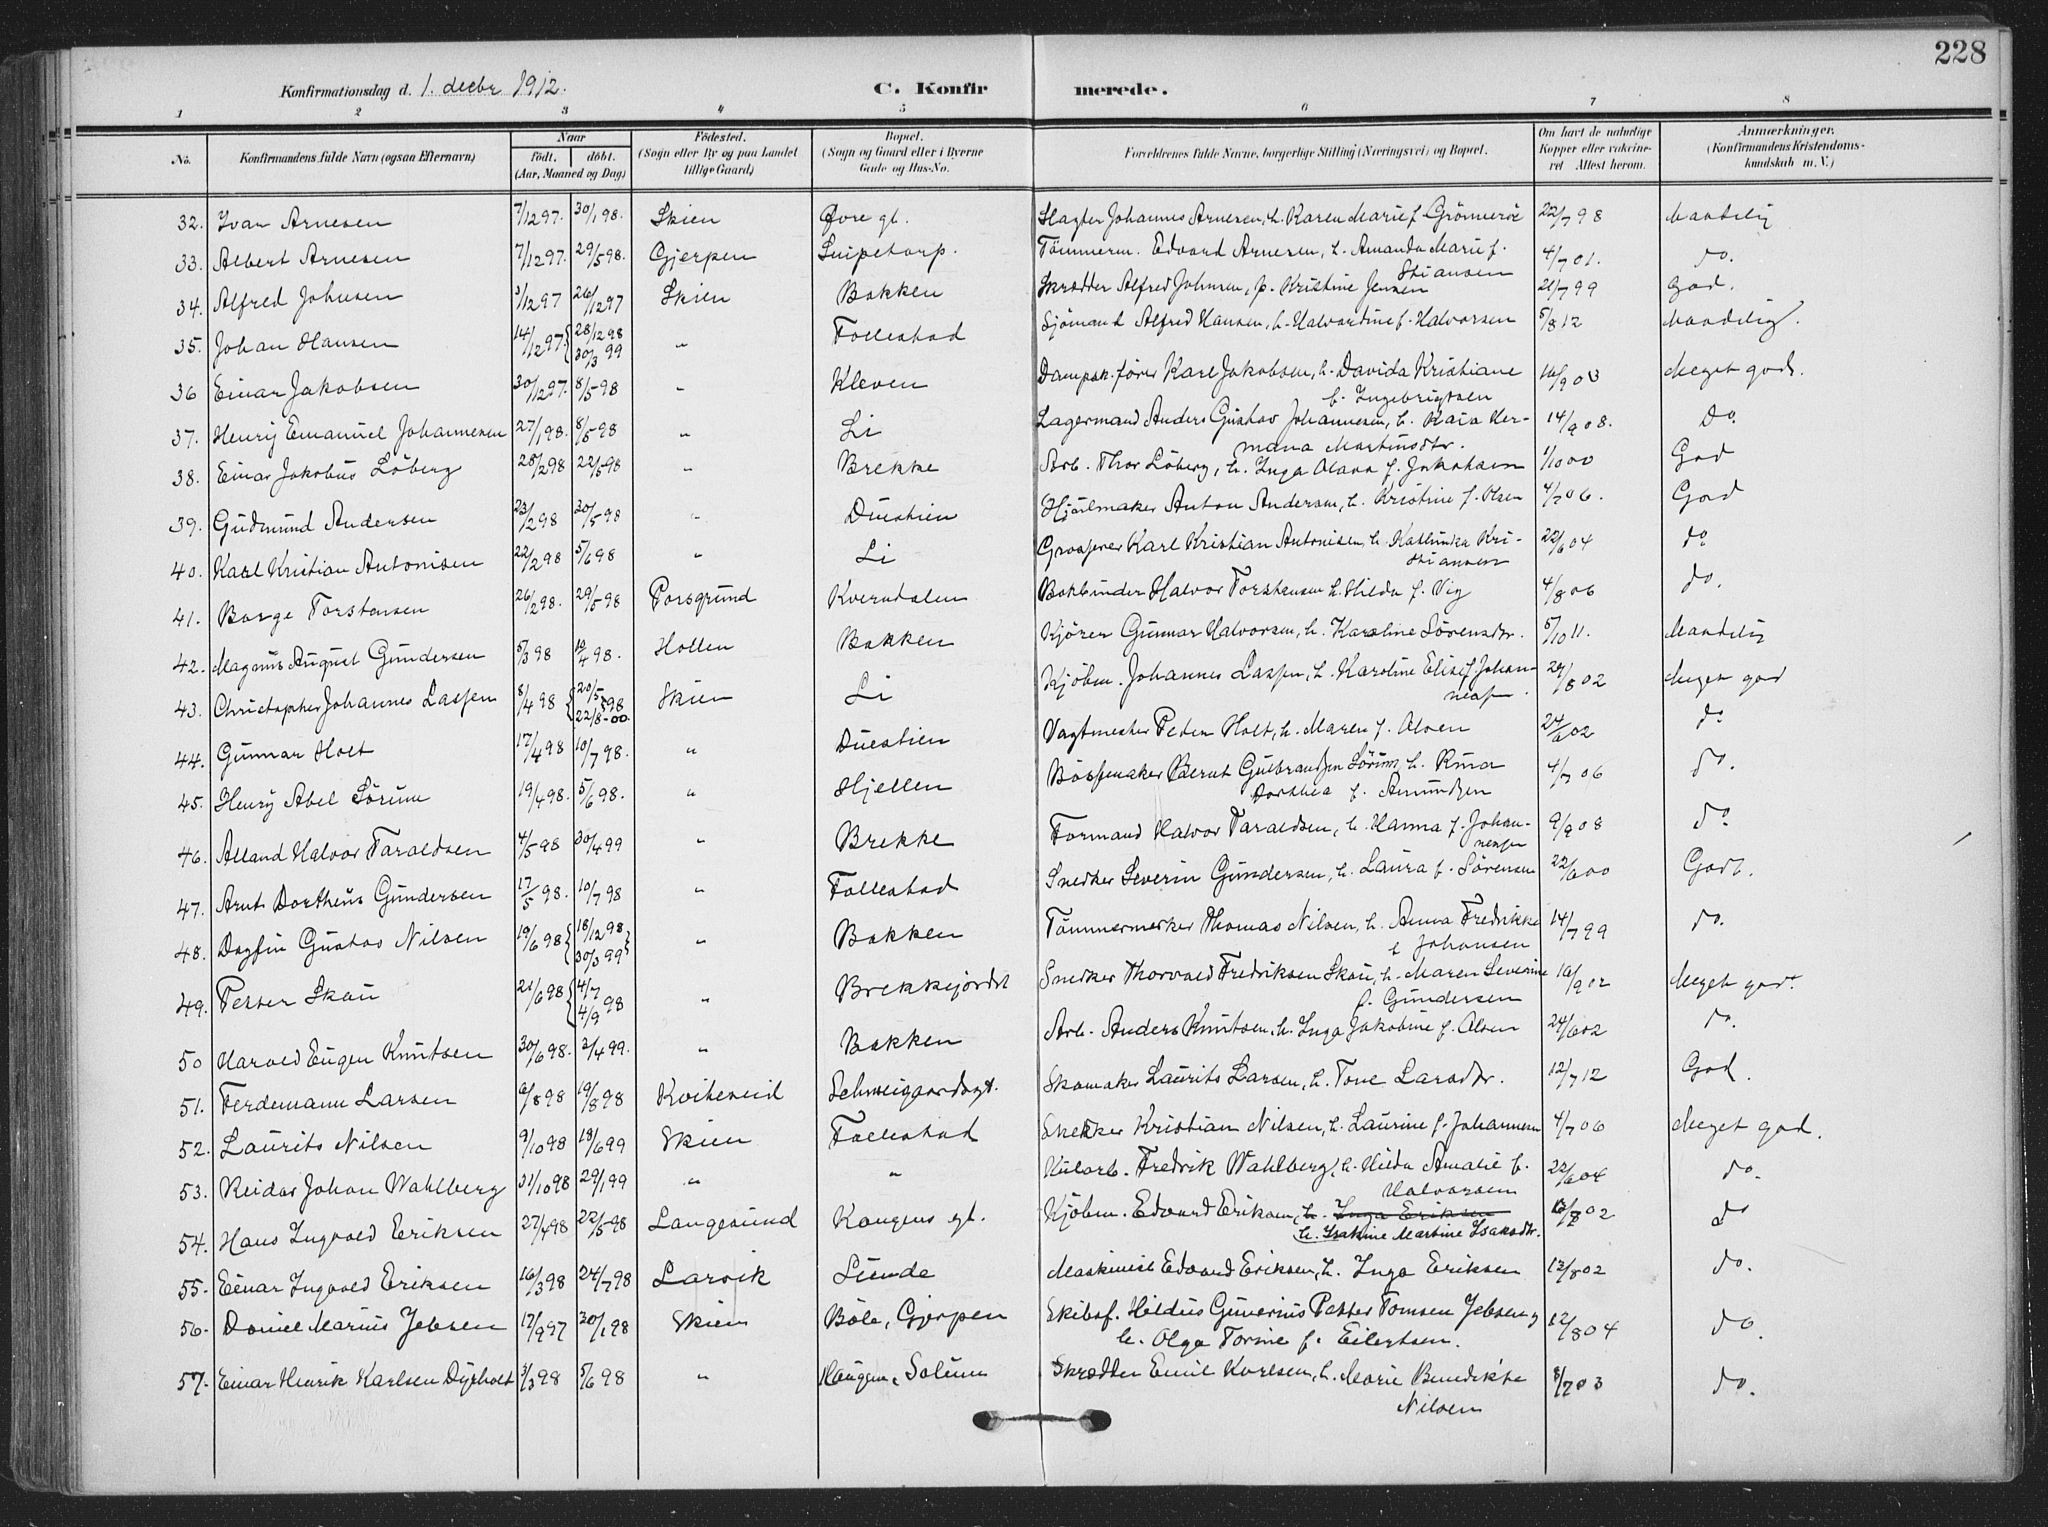 228
Konfirmationsdag d. 1. decbr 1912. C. Konfirmerede.
1 2 3 4 5 6 7 8
No. Konfirmandens fulde Navn (ogsaa Efternavn) Naar født. døbt. (Aar, Maaned og Dag) Fødested. (Sogn eller By og paa Landet tillige Gaard) Bopæl. (Sogn og Gaard eller i Byerne Gade og Hus-No. Forældrenes fulde Navne, borgerlige Stilling (Næringsvei) og Bopæl. Om havt de naturlige Kopper eller vakcineret Attest herom. Anmærkninger. (Konfirmandens Kristendomskundskab m. V.)
32. Ivar Arnesen 7/12 97. 30/1 98. Skien Øvre gt. Slagter Johannes Arnesen, h. Karen Marie f. Grönneröe 22/7 98 Maadelig
33. Albert Arnesen 7/12 97. 29/5 98. Gjerpen Snipetorp. Tömmerm. Edvard Arnesen, h. Amanda Marie f. Stiansen 4/7 01. do.
34. Alfred Johnsen 3/12 97 26/12 97 Skien Bakken Skrædder Alfred Johnsen, p. Kristine Jensen 21/7 99 God.
35. Johan Hansen 14/12 97. 28/12 98 30/3 99 " Follestad Sjömand Alfred Hansen, h. Halvardine f. Halvorsen 5/8 12 Maadelig.
36 Einar Jakobsen 30/12 97. 8/5 98 " Kleven Dampsk.förer Karl Jakobsen, h. Davida Kristiane f. Ingebrigtsen 16/9 03 Meget god.
37. Henry Emanuel Johannesen 27/1 98. 8/5 98 " Li Lagermand Anders Gustav Johannesen, h. Kaia Hermana Martinsdtr. 14/9 08. do.
38. Einar Jakobus Löberg 28/2 98 22/5 98 " Brekke Arb. Thor Löberg, h. Inga Olava f. Jakobsen 1/10 00 God
39. Gudmund Andersen 23/2 98 30/5 98 " Duestien Hjulmaker Anton Andersen, h. Kristine f. Olsen 4/7 06. God
40. Karl Kristian Antonisen 22/2 98 5/6 98 " Li Grosserer Karl Kristian Antonisen, h. Kathinka Kristiansen 22/6 04 do
41. Borge Torstensen 26/2 98. 29/5 98 Porsgrund Kverndalen Bokbinder Halvor Torstensen h. Hilda f. Vig 4/8 06 do.
42. Magnus August Gundersen 5/3 98 10/4 98. Hollen Bakken Kjörer Gunnar Halvorsen, h. Karoline Sörensdtr. 5/10 11. Maadelig
43. Christopher Johannes Lassen 8/4 98 20/5 98 22/8-00. Skien Li Kjöbm. Johannes Lassen, h. Karoline Elise f. Johannessen. 20/8 02 Meget god
44. Gunnar Holt 17/4 98 10/7 98. " Duestien Vagtmester Peter Holt, h. Maren f. Olsen 24/6 02 do
45. Henry Abel Sörum 19/4 98. 5/6 98. " Hjellen Bössemaker Bernt Gulbrandsen Sörum, h. Runa Dorthea f. Amundsen 4/7 06 do.
46. Alland Halvor Taraldsen 4/5 98 30/4 99 " Brekke Formand Halvor Taraldsen, h. Hanna f. Johannessen 9/9 08 do
47. Arnt Dortheus Gundersen 17/5 98. 10/7 98 " Follestad Snedker Severin Gundersen, h. Laura f. Sörensen 22/6 00 Godt.
48. Dagfin Gustav Nilsen 19/6 98 18/12 98 30/3 99 " Bakken Tömmermerker Thomas Nilsen, h. Anna Fredrikke f. Johansen 14/7 99 do.
49. Petter Skau 21/6 98 4/7 4/9 98 " Brekkejordet Snedker Thorvald Fredriksen Skau, h. Maren Severine f. Gundersen 10/9 02 Meget god.
50 Harald Eugen Knutsen 30/6 98. 2/4 99. " Bakken Arb. Anders Knutsen, h. Inga Jakobine f. Olsen 24/6 02 do.
51. Ferdemann Larsen 6/8 98 19/8 98 Kviteseid Schweigaardsgt. Skomaker Laurits Larsen, h. Tone Larsdtr. 12/7 12 God.
52. Laurits Nilsen 9/10 98 18/6 99 Skien Follestad Snekker Kristian Nilsen, h. Laurine f. Johannesen 4/7 06 Meget god.
53. Reidar Johan Wahlberg 31/10 98 29/1 99 " " Kularb. Fredrik Wahlberg, h. Hilda Amalie f. Halvorsen 22/6 04 do.
54. Hans Ingvald Eriksen 27/4 98 22/5 98 Langesund Kongens gt. Kjöbm. Edvard Eriksen, h. Inga Eriksen h. Isakine Martine Isaksdtr. 13/8 02 do
55. Einar Ingvald Eriksen 16/3 98 24/7 98 Larvik Lunde Maskinist Edvard Eriksen, h. Inga Eriksen 13/8 02 do.
56. Daniel Marius Jebsen 17/9 97 30/1 98 Skien Böle, Gjerpen Skibsf. Hildus Guverius Petter Tomsen Jebsen og h. Olga Torine f. Eilertsen. 12/8 04 do.
57. Einar Henrik Karlsen Dyrholt 3/3 98 5/6 98 " Haugen, Solum Skrædder Emil Karlsen, h. Marie Benedikte Nilsen 8/7 03 do.